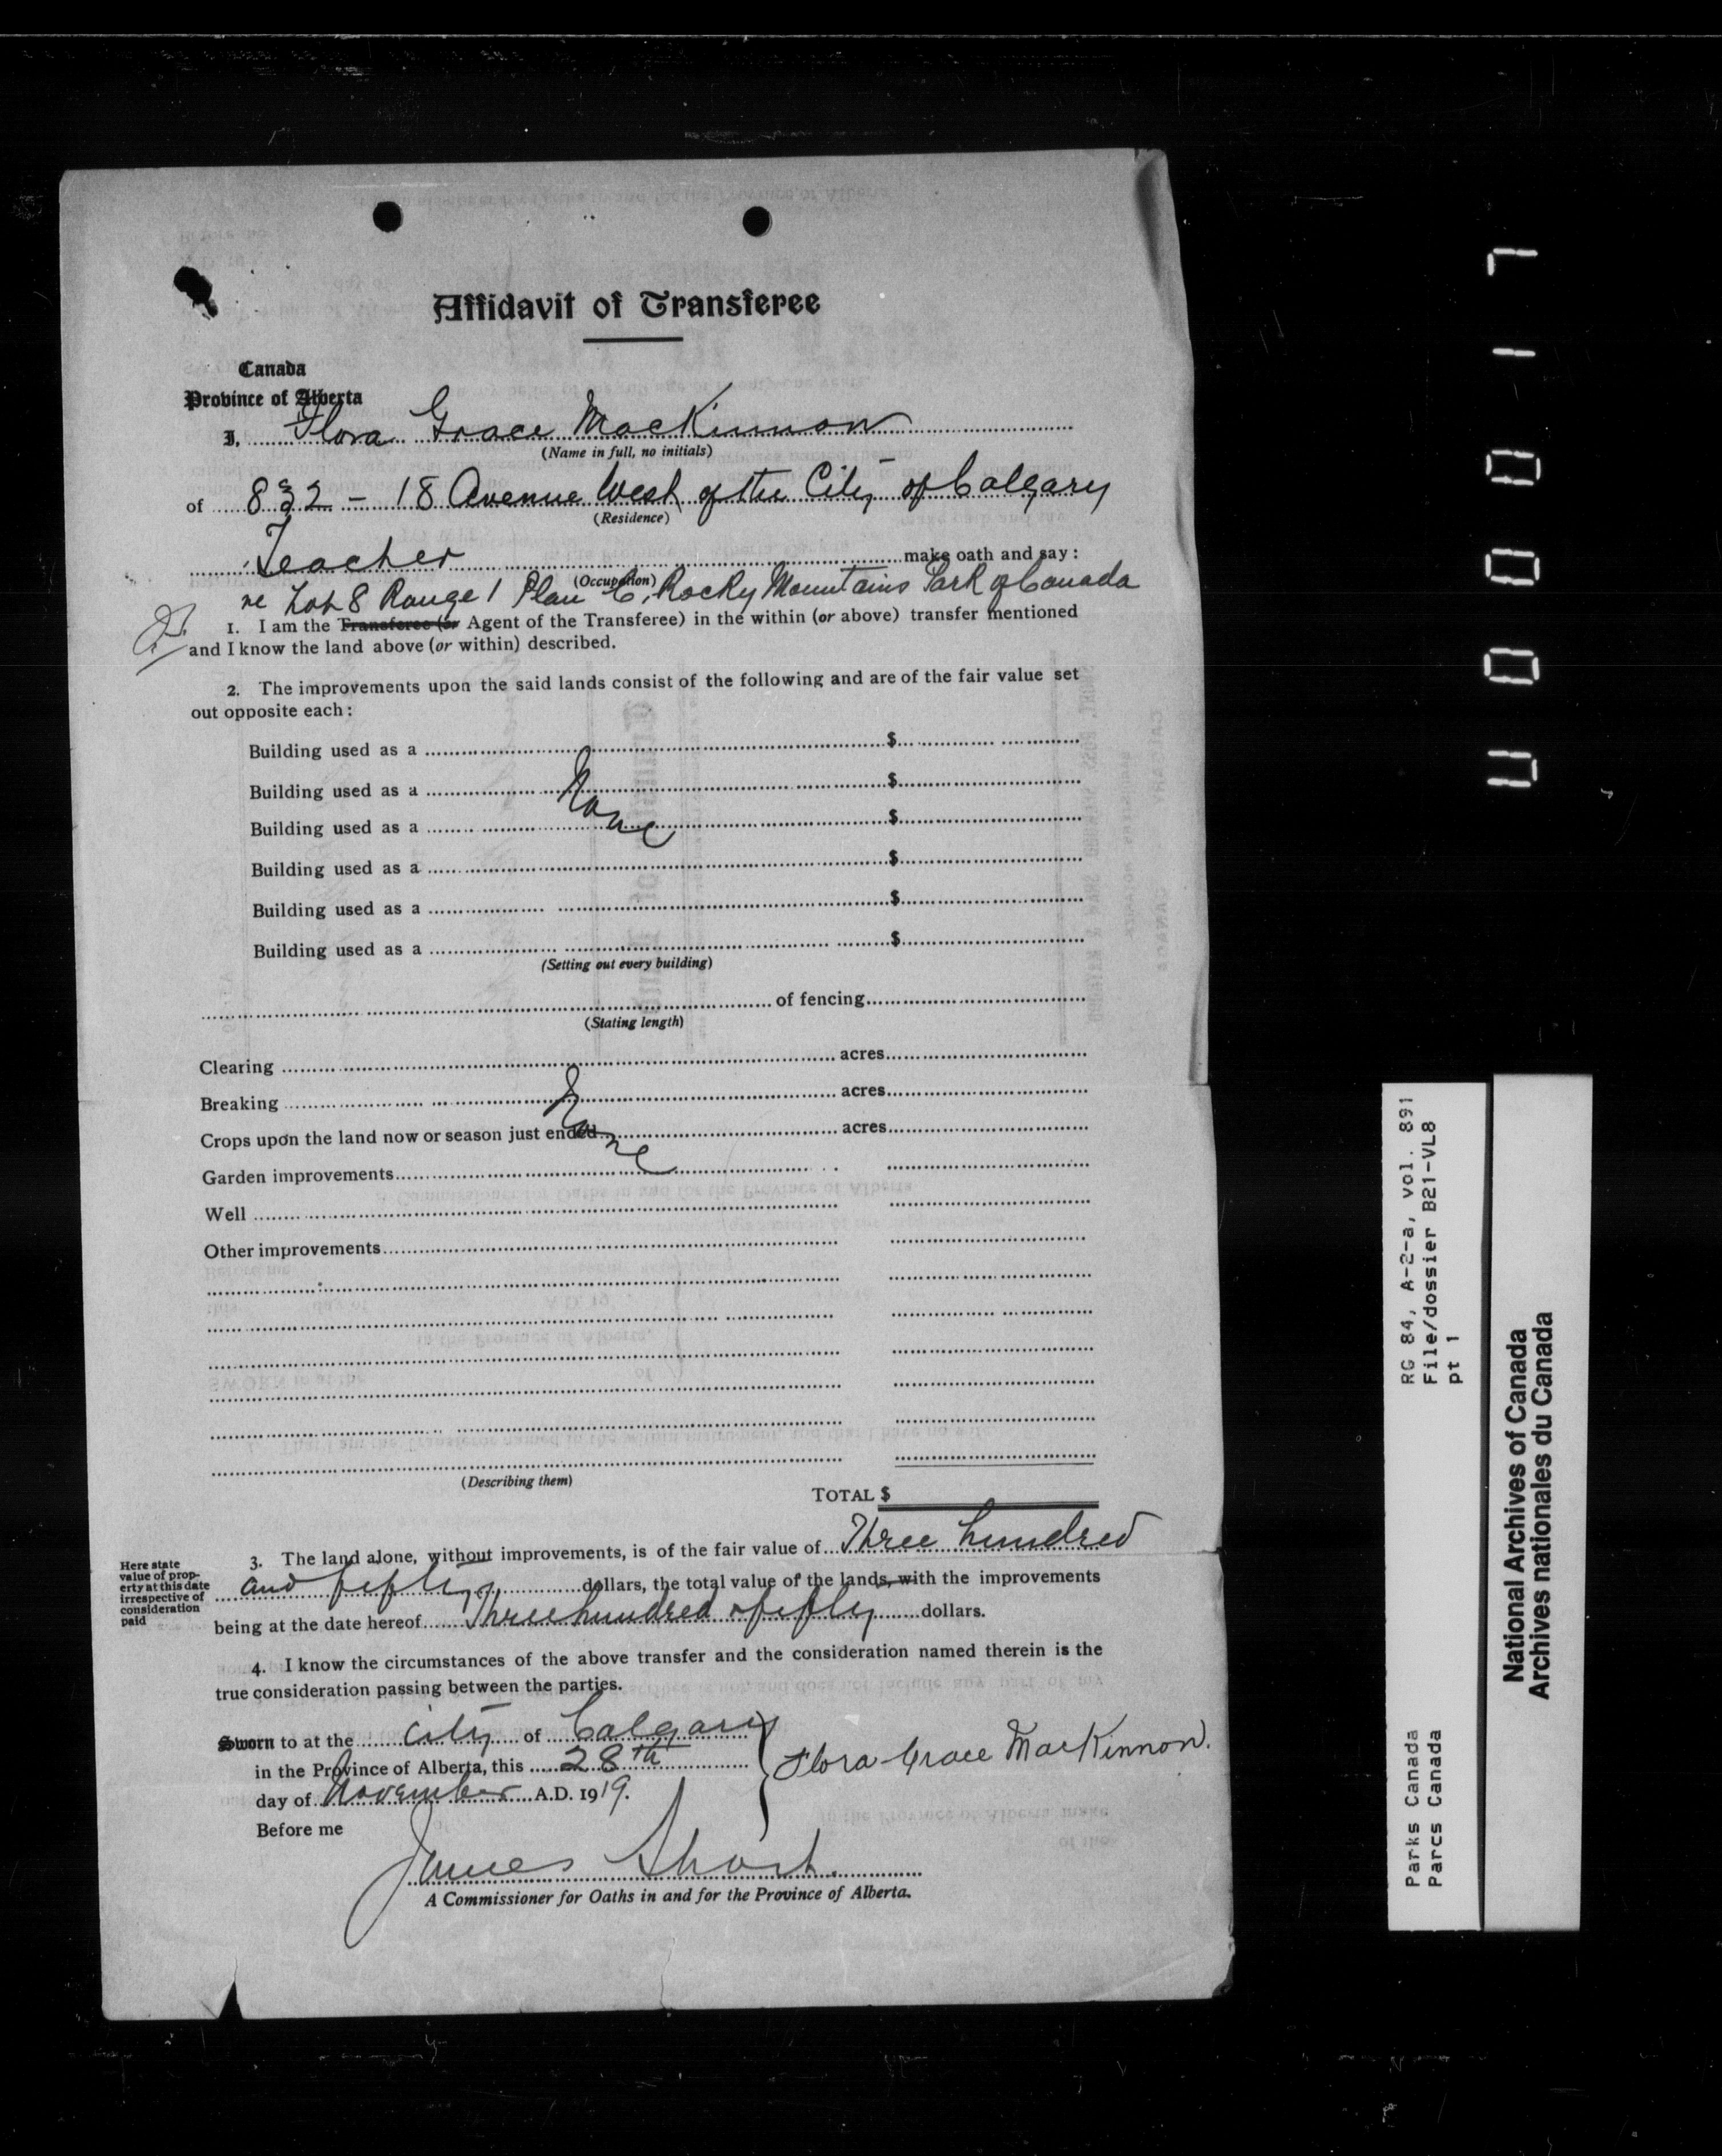 Affidavit of Transferee
Canada
Province of Alberta
I, Flora Grace MacKinnon
(Name in full, no initials)
of 832 - 18 Avenue West of the City of Calgary
(Residence)
Teacher make oath and say:
(Occupation)
re Lot 8 Range 1 Plan C, Rocky Mountains Park of Canada
1. I am the Transferee (or Agent of the Transferee) in the within (or above) transfer mentioned
and I know the land above (or within) described.
2. The improvements upon the said lands consist of the following and are of the fair value set
out opposite each:
Building used as a $
Building used as a $
None
Building used as a $
Building used as a $
Building used as a $
Building used as a $
(Setting out every building)
of fencing
(Stating length)
Clearing acres
Breaking acres
None
Crops upon the land now or season just ended acres
Garden improvements
Well
Other improvements
(Describing them)
TOTAL $
3. The land alone, without improvements, is of the fair value of Three hundred
and fifty dollars, the total value of the lands, with the improvements
being at the date hereof Three hundred & fifty dollars.
Here state
value of prop-
erty at this date
irrespective of
consideration
paid
4. I know the circumstances of the above transfer and the consideration named therein is the
true consideration passing between the parties.
Sworn to at the City of Calgary
in the Province of Alberta, this 28th
day of November A.D. 1919.
Flora Grace MacKinnon.
Before me
James Short
A Commissioner for Oaths in and for the Province of Alberta.
U 0 0 0 1 7
RG 84, A-2-a, vol. 891
File/dossier B21-VL8
pt 1
Parks Canada
Parcs Canada
National Archives of Canada
Archives nationales du Canada